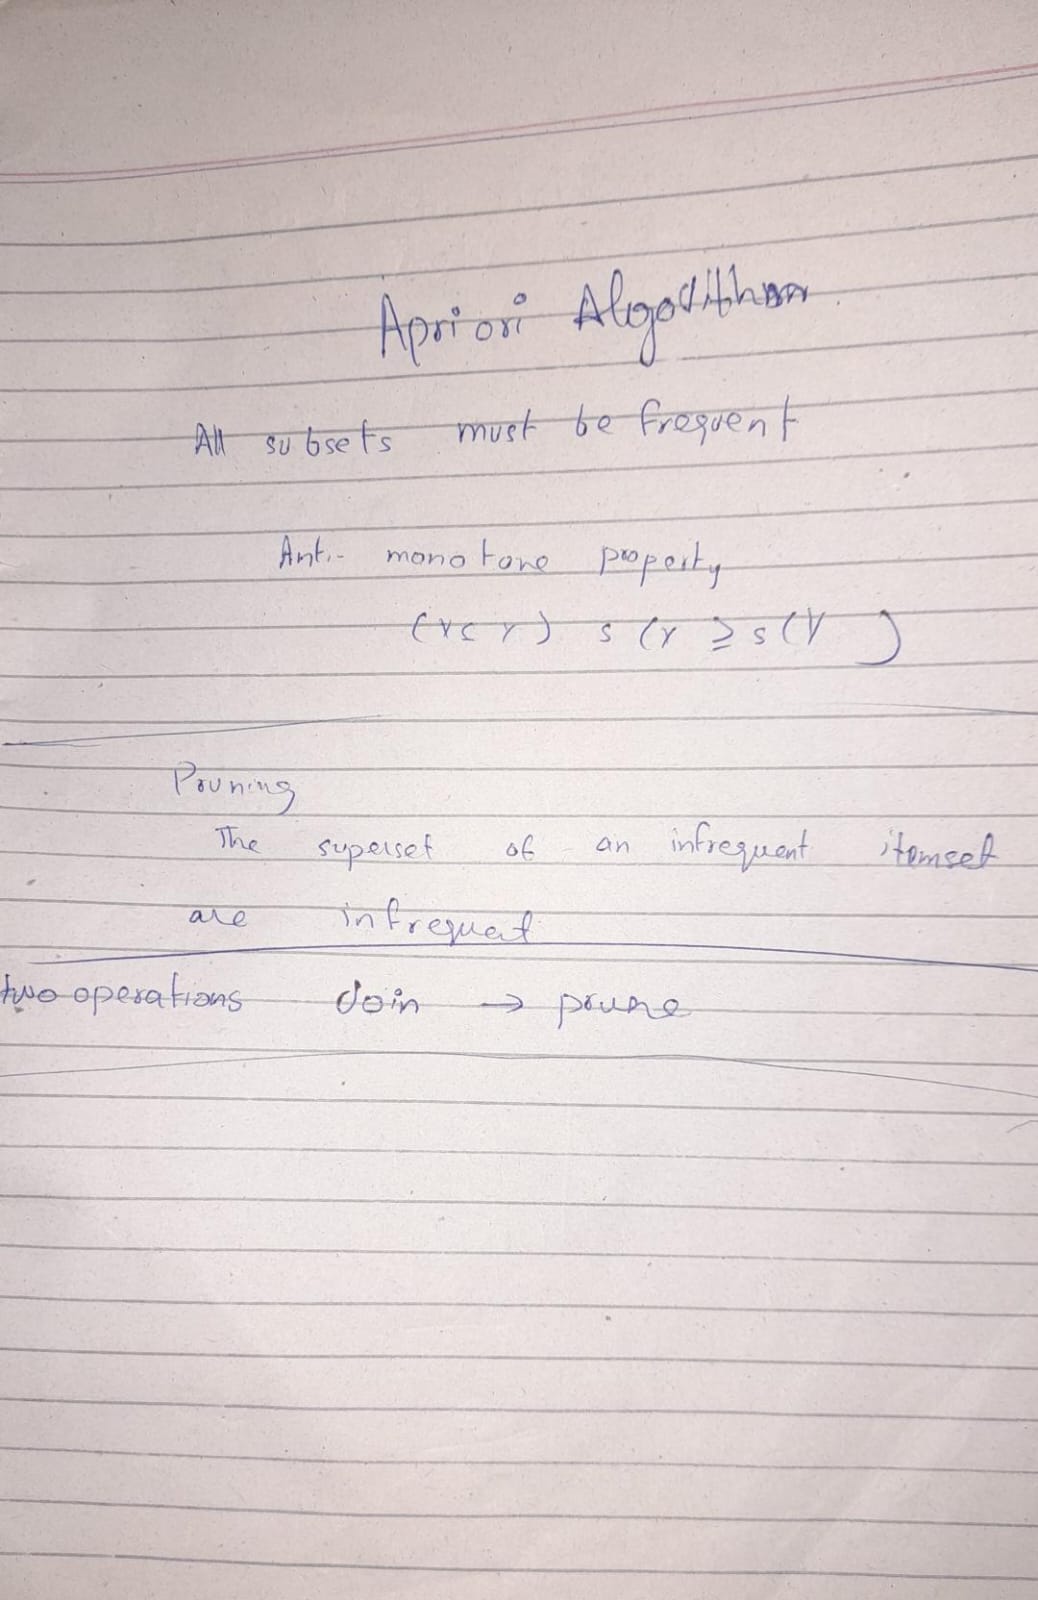 Apriori Algorithm
All subsets must be frequent
Anti- monotone property
(x ⊂ y) s (x ≥ s(y )
Pruning
The superset of an infrequent itemset
are infrequet
two operations Join → prune